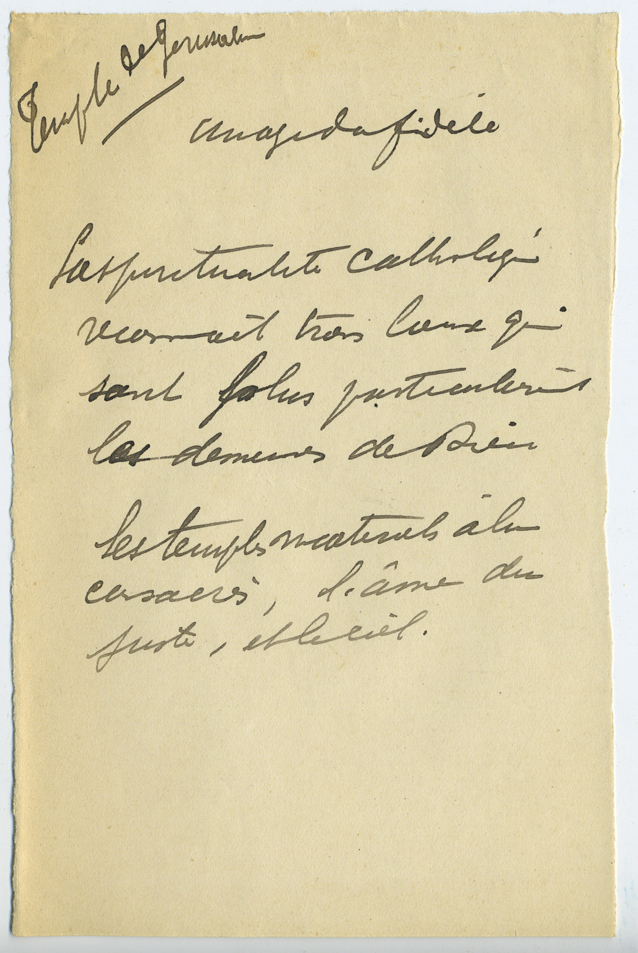 Temple de Jerusalem
image du fidèle
La spiritualité catholiq
reconnait trois lieux qui
sont plus particulièrt
les demeures de Dieu
les temples matériels à lui
consacrés, l'âme du
juste, et le ciel.